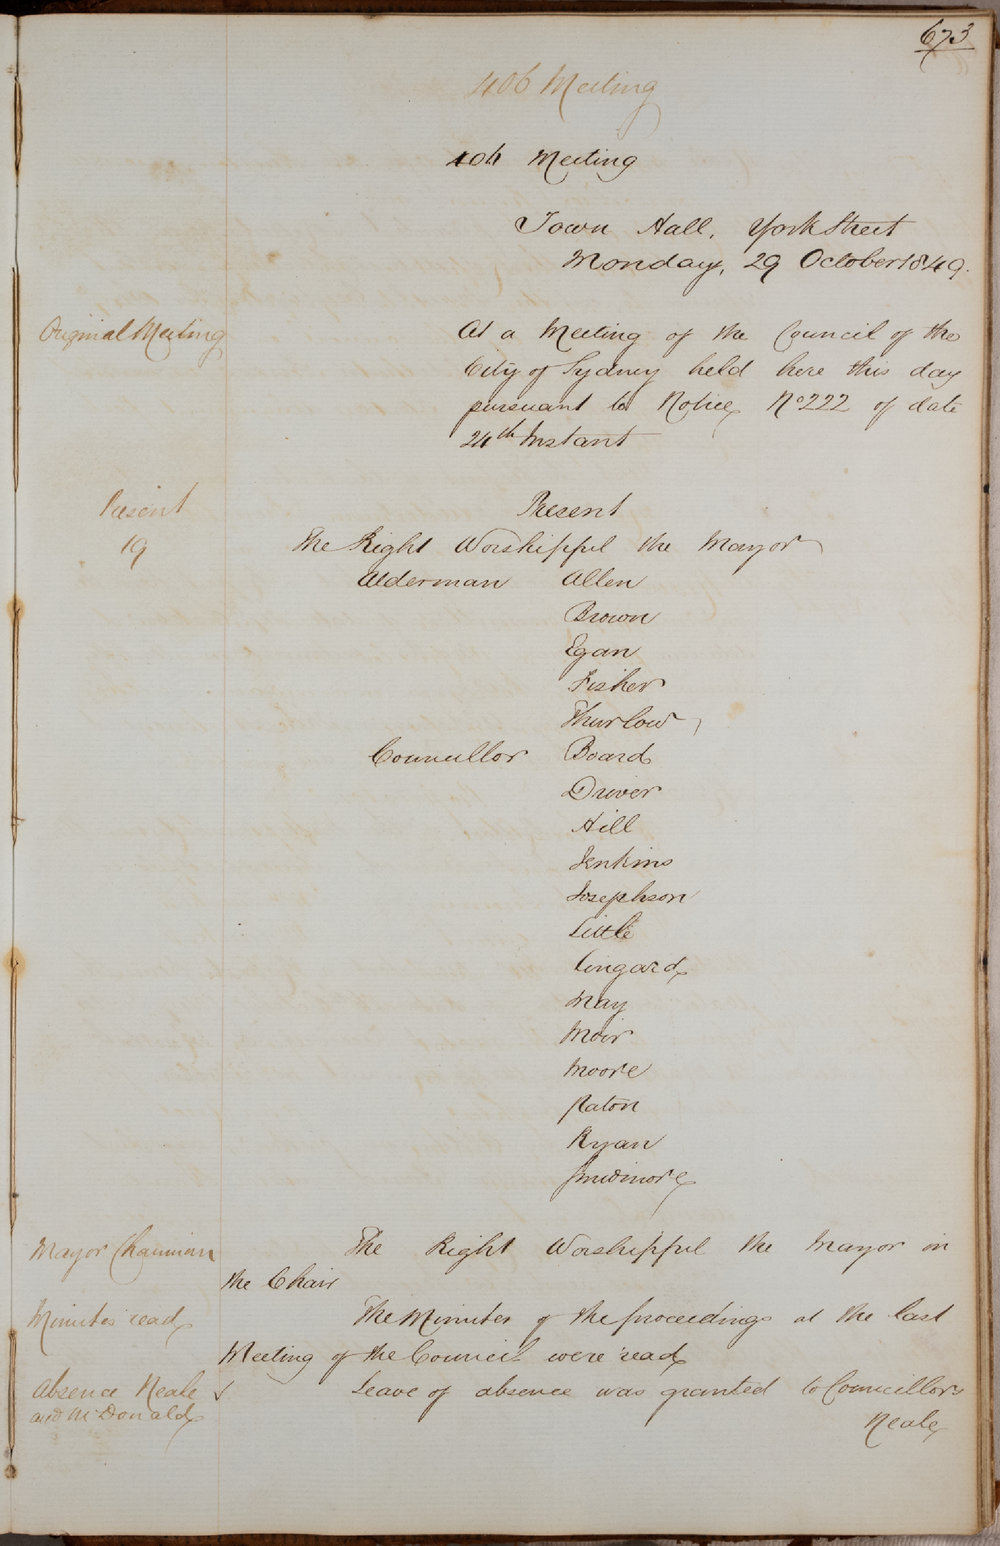 673
406 Meeting
406 Meeting
Town Hall, York Street
Monday, 29 October 1849.
Original Meeting
At a Meeting of the Council of the
City of Sydney held here this day
pursuant to Notice No 222 of date
24th Instant
Present
19
Present
The Right Worshipful the Mayor
Alderman Allen
Brown
Egan
Fisher
Thurlow
Councillor Board
Driver
Hill
Jenkins
Josephson
Little
Lingard
May
Moir
Moore
Paton
Ryan
Smidmore
Mayor Chairman
The Right Worshipful the Mayor in
the Chair
Minutes read
The Minutes of the proceedings at the last
Meeting of the Council were read
Absence Neale
and McDonald
Leave of absence was granted to Councillors
Neale